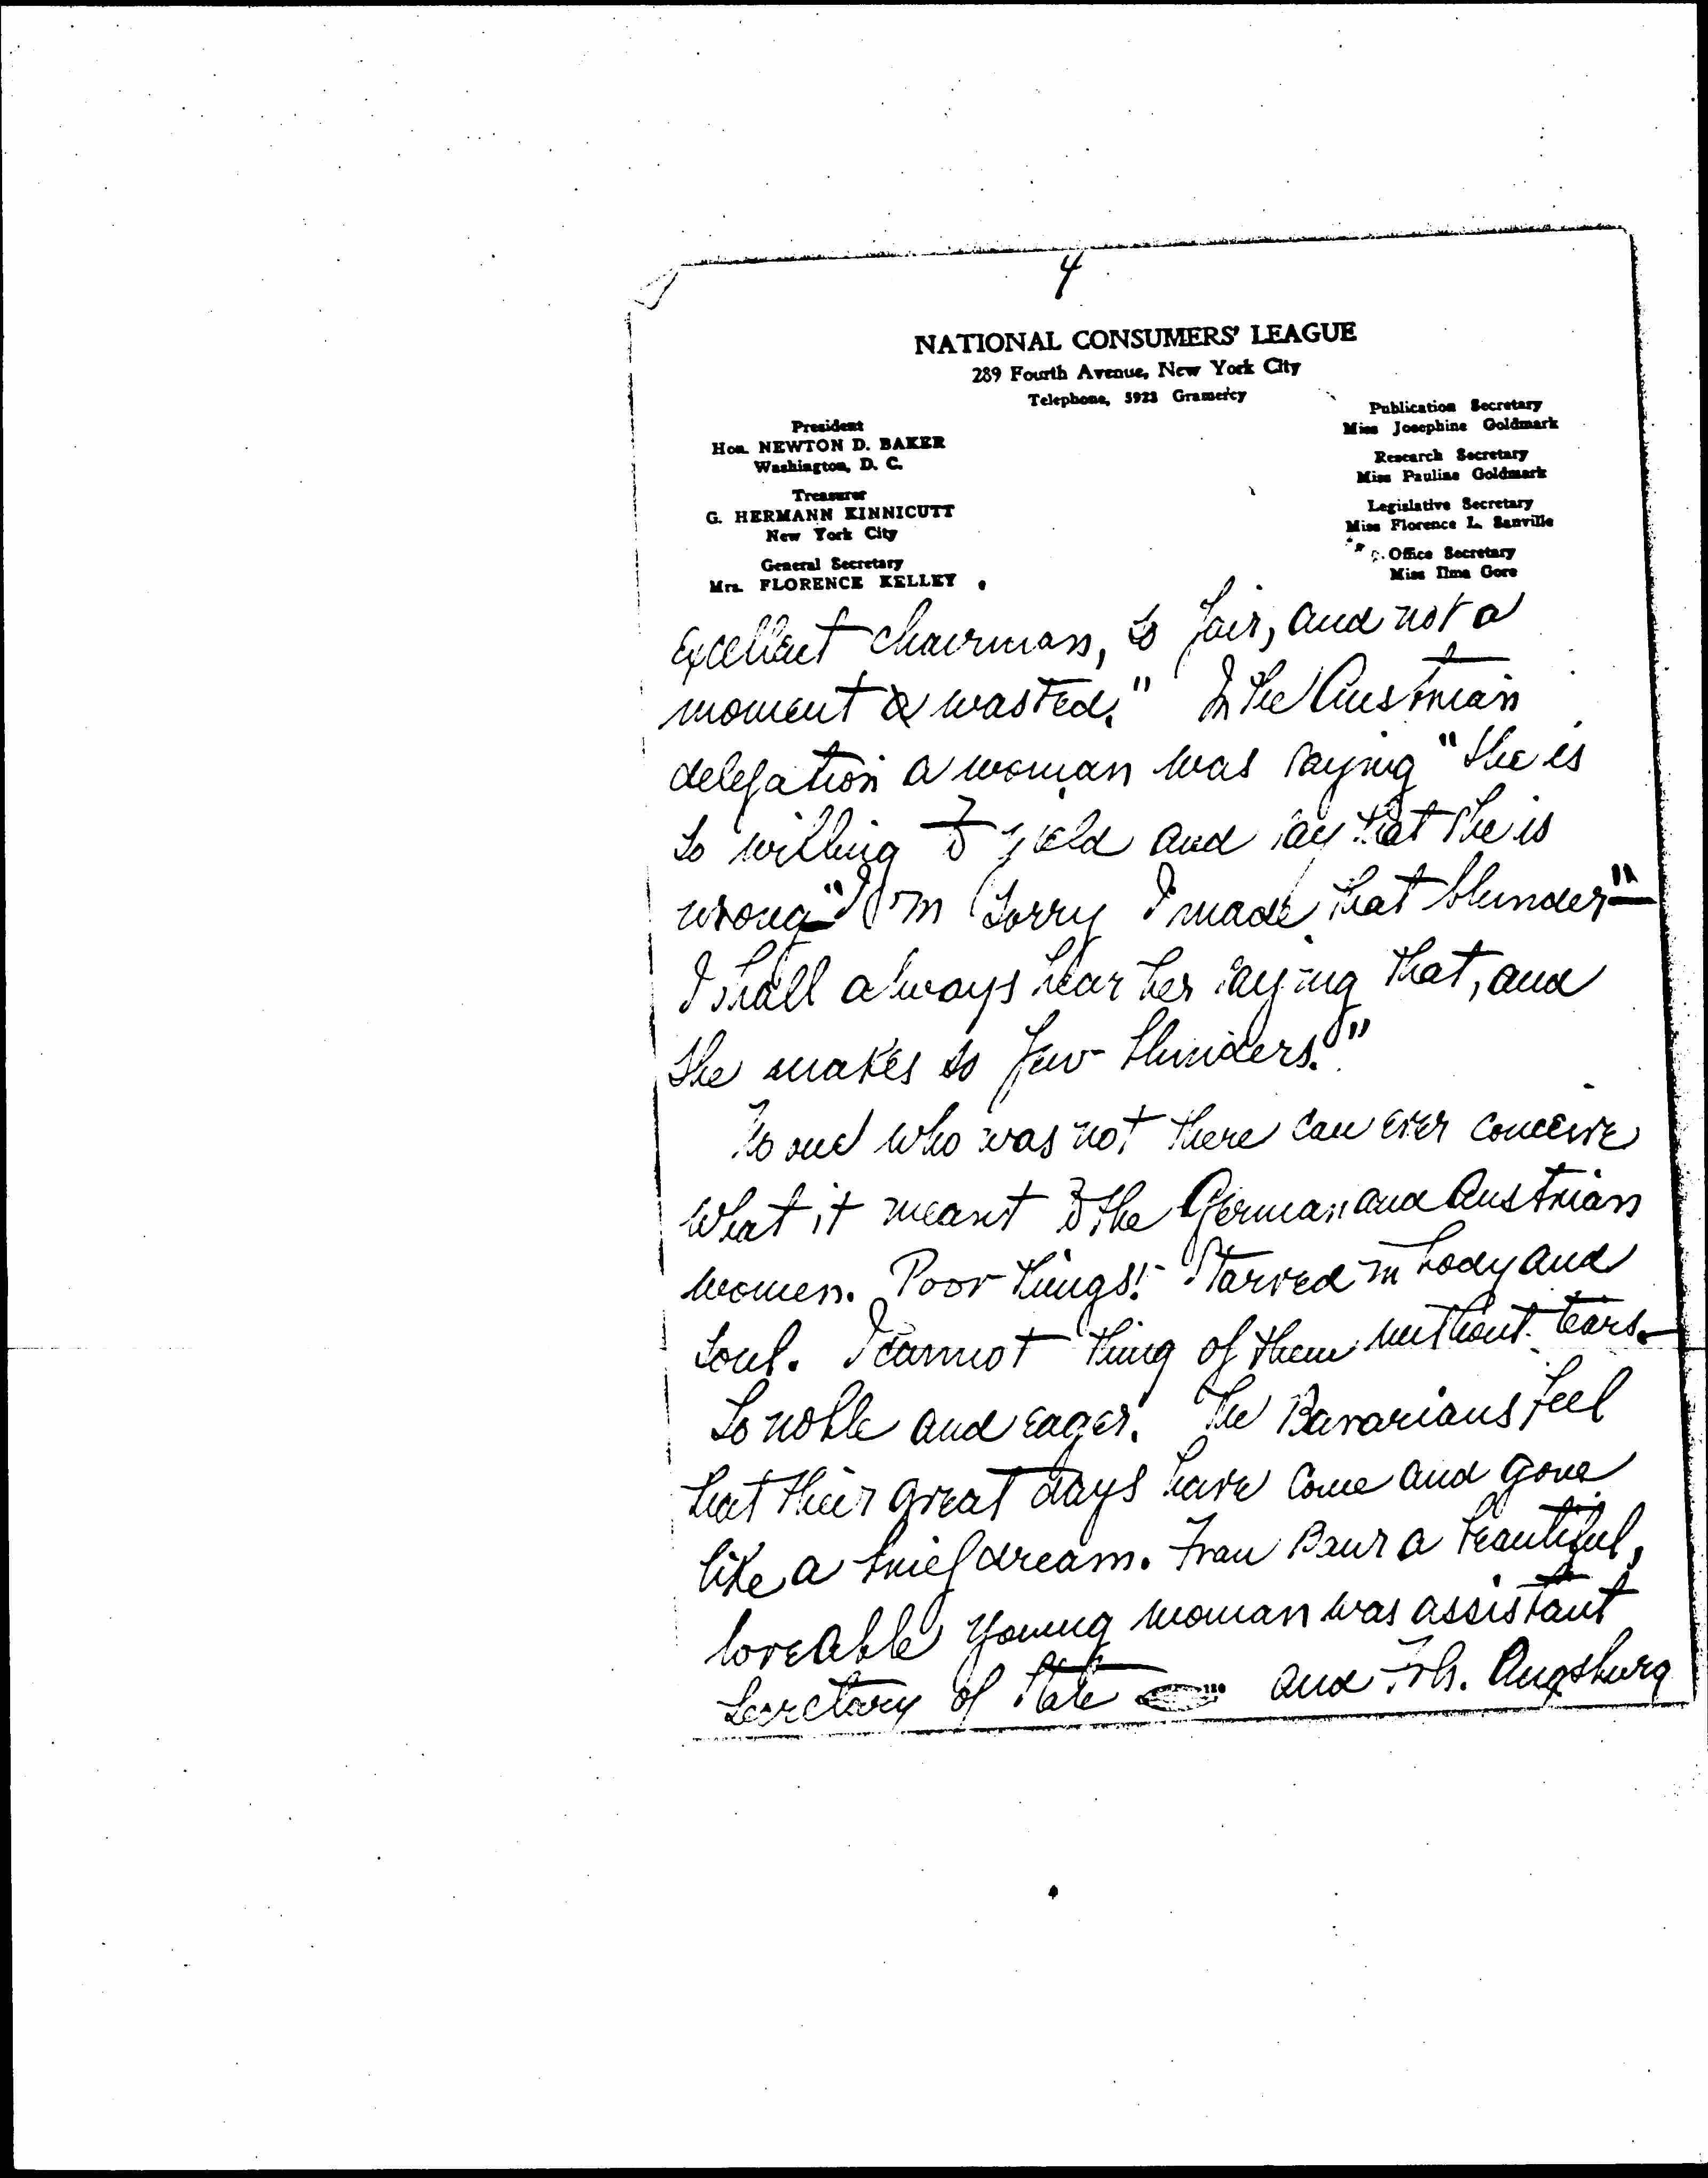 4
NATIONAL CONSUMERS' LEAGUE
289 Fourth Avenue, New York City
Telephone, 5923 Gramercy
President
Hon. NEWTON D. BAKER
Washington, D. C.
Treasurer
G. HERMANN KINNICUTT
New York City
General Secretary
Mrs. FLORENCE KELLEY
Publication Secretary
Miss Josephine Goldmark
Research Secretary
Miss Pauline Goldmark
Legislative Secretary
Miss Florence L. Sanville
Office Secretary
Miss Ilma Gore
excellent chairman, so fair, and not a
moment wasted." In the Austrian
delegation a woman was saying "She is
so willing to yield and say that she is
wrong "I'm sorry I made that blunder"—
I shall always hear her saying that, and
she makes so few blunders."
No one who was not there can ever conceive
what it meant to the German and Austrian
women. Poor things! Starved in body and
soul. I cannot thing of them without tears—
so noble and eager. The Bavarians feel
that their great days have come and gone
like a brief dream. Frau Baur a beautiful,
loveable young woman was assistant
Secretary of State and Augsburg